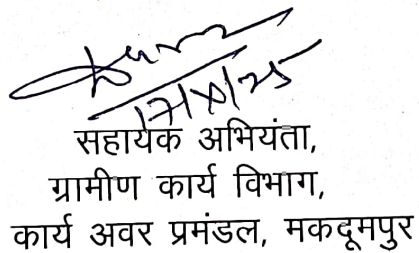 सहायक अभियंता,
ग्रामीण कार्य विभाग,
कार्य अवर प्रमंडल, मकदूमपुर